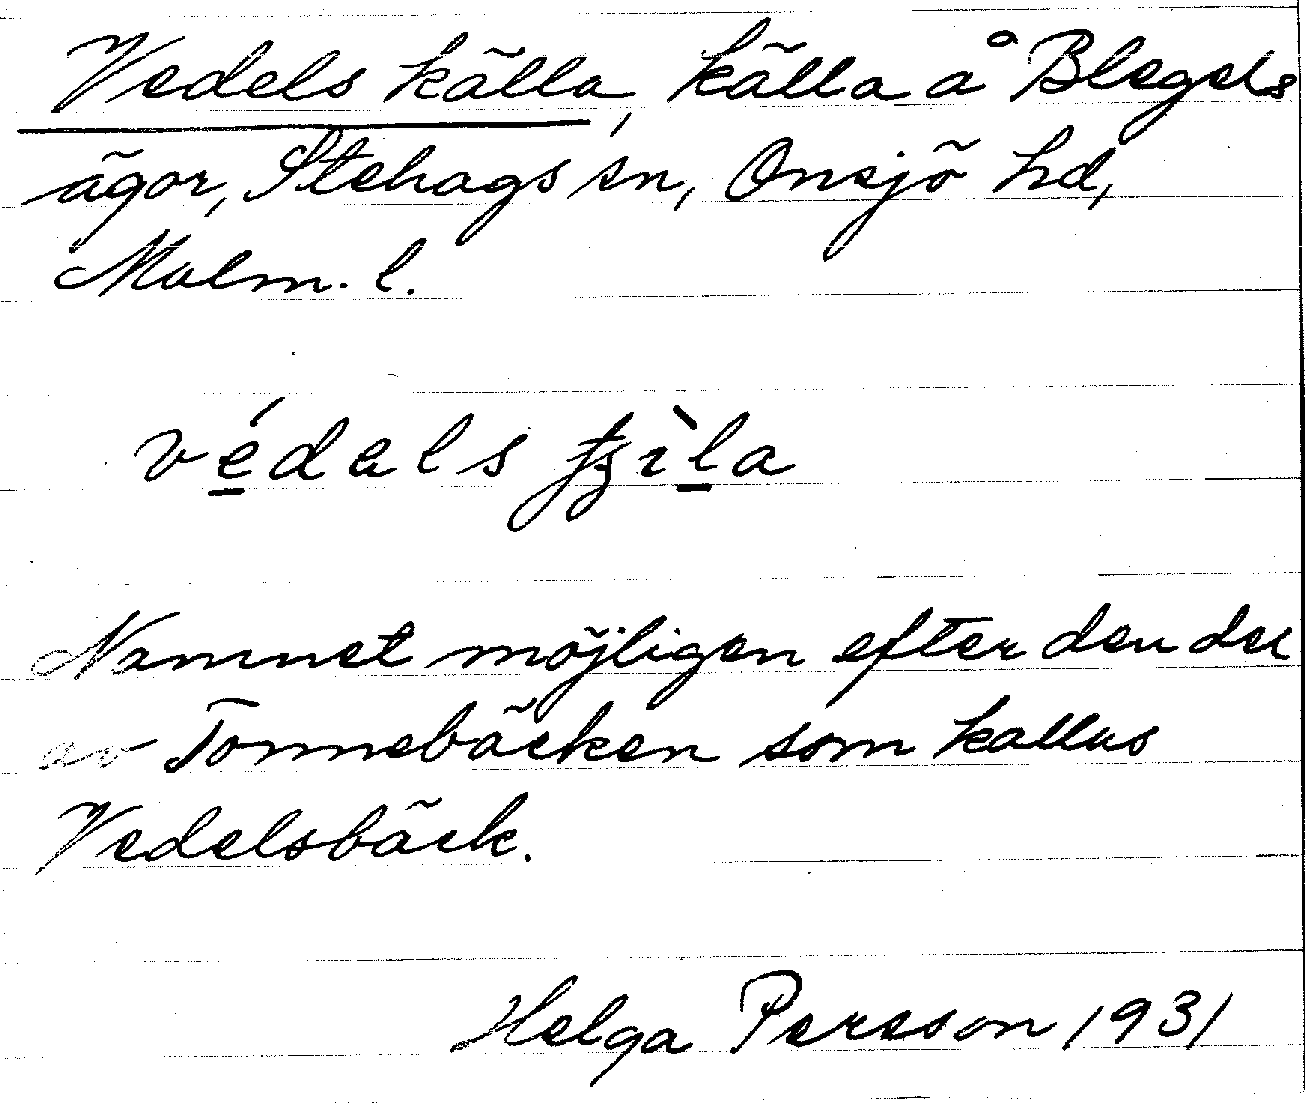 Vedels källa, källa å Blegels
ägor, Stehags sn, Onsjö hd,
Malm. l.
védəls
Namnet möjligen efter den del
av Tonnebäcken som kallas
Vedelsbäck.
Helga Persson 1931